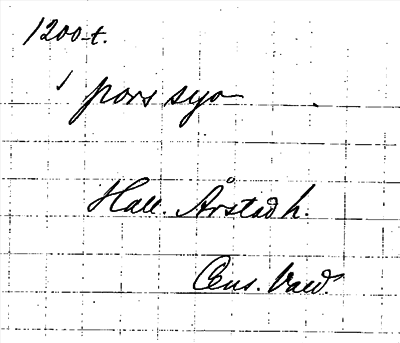 1200-t.
1 pors syo
Hall. Årstad h.
Cens. Vawd.